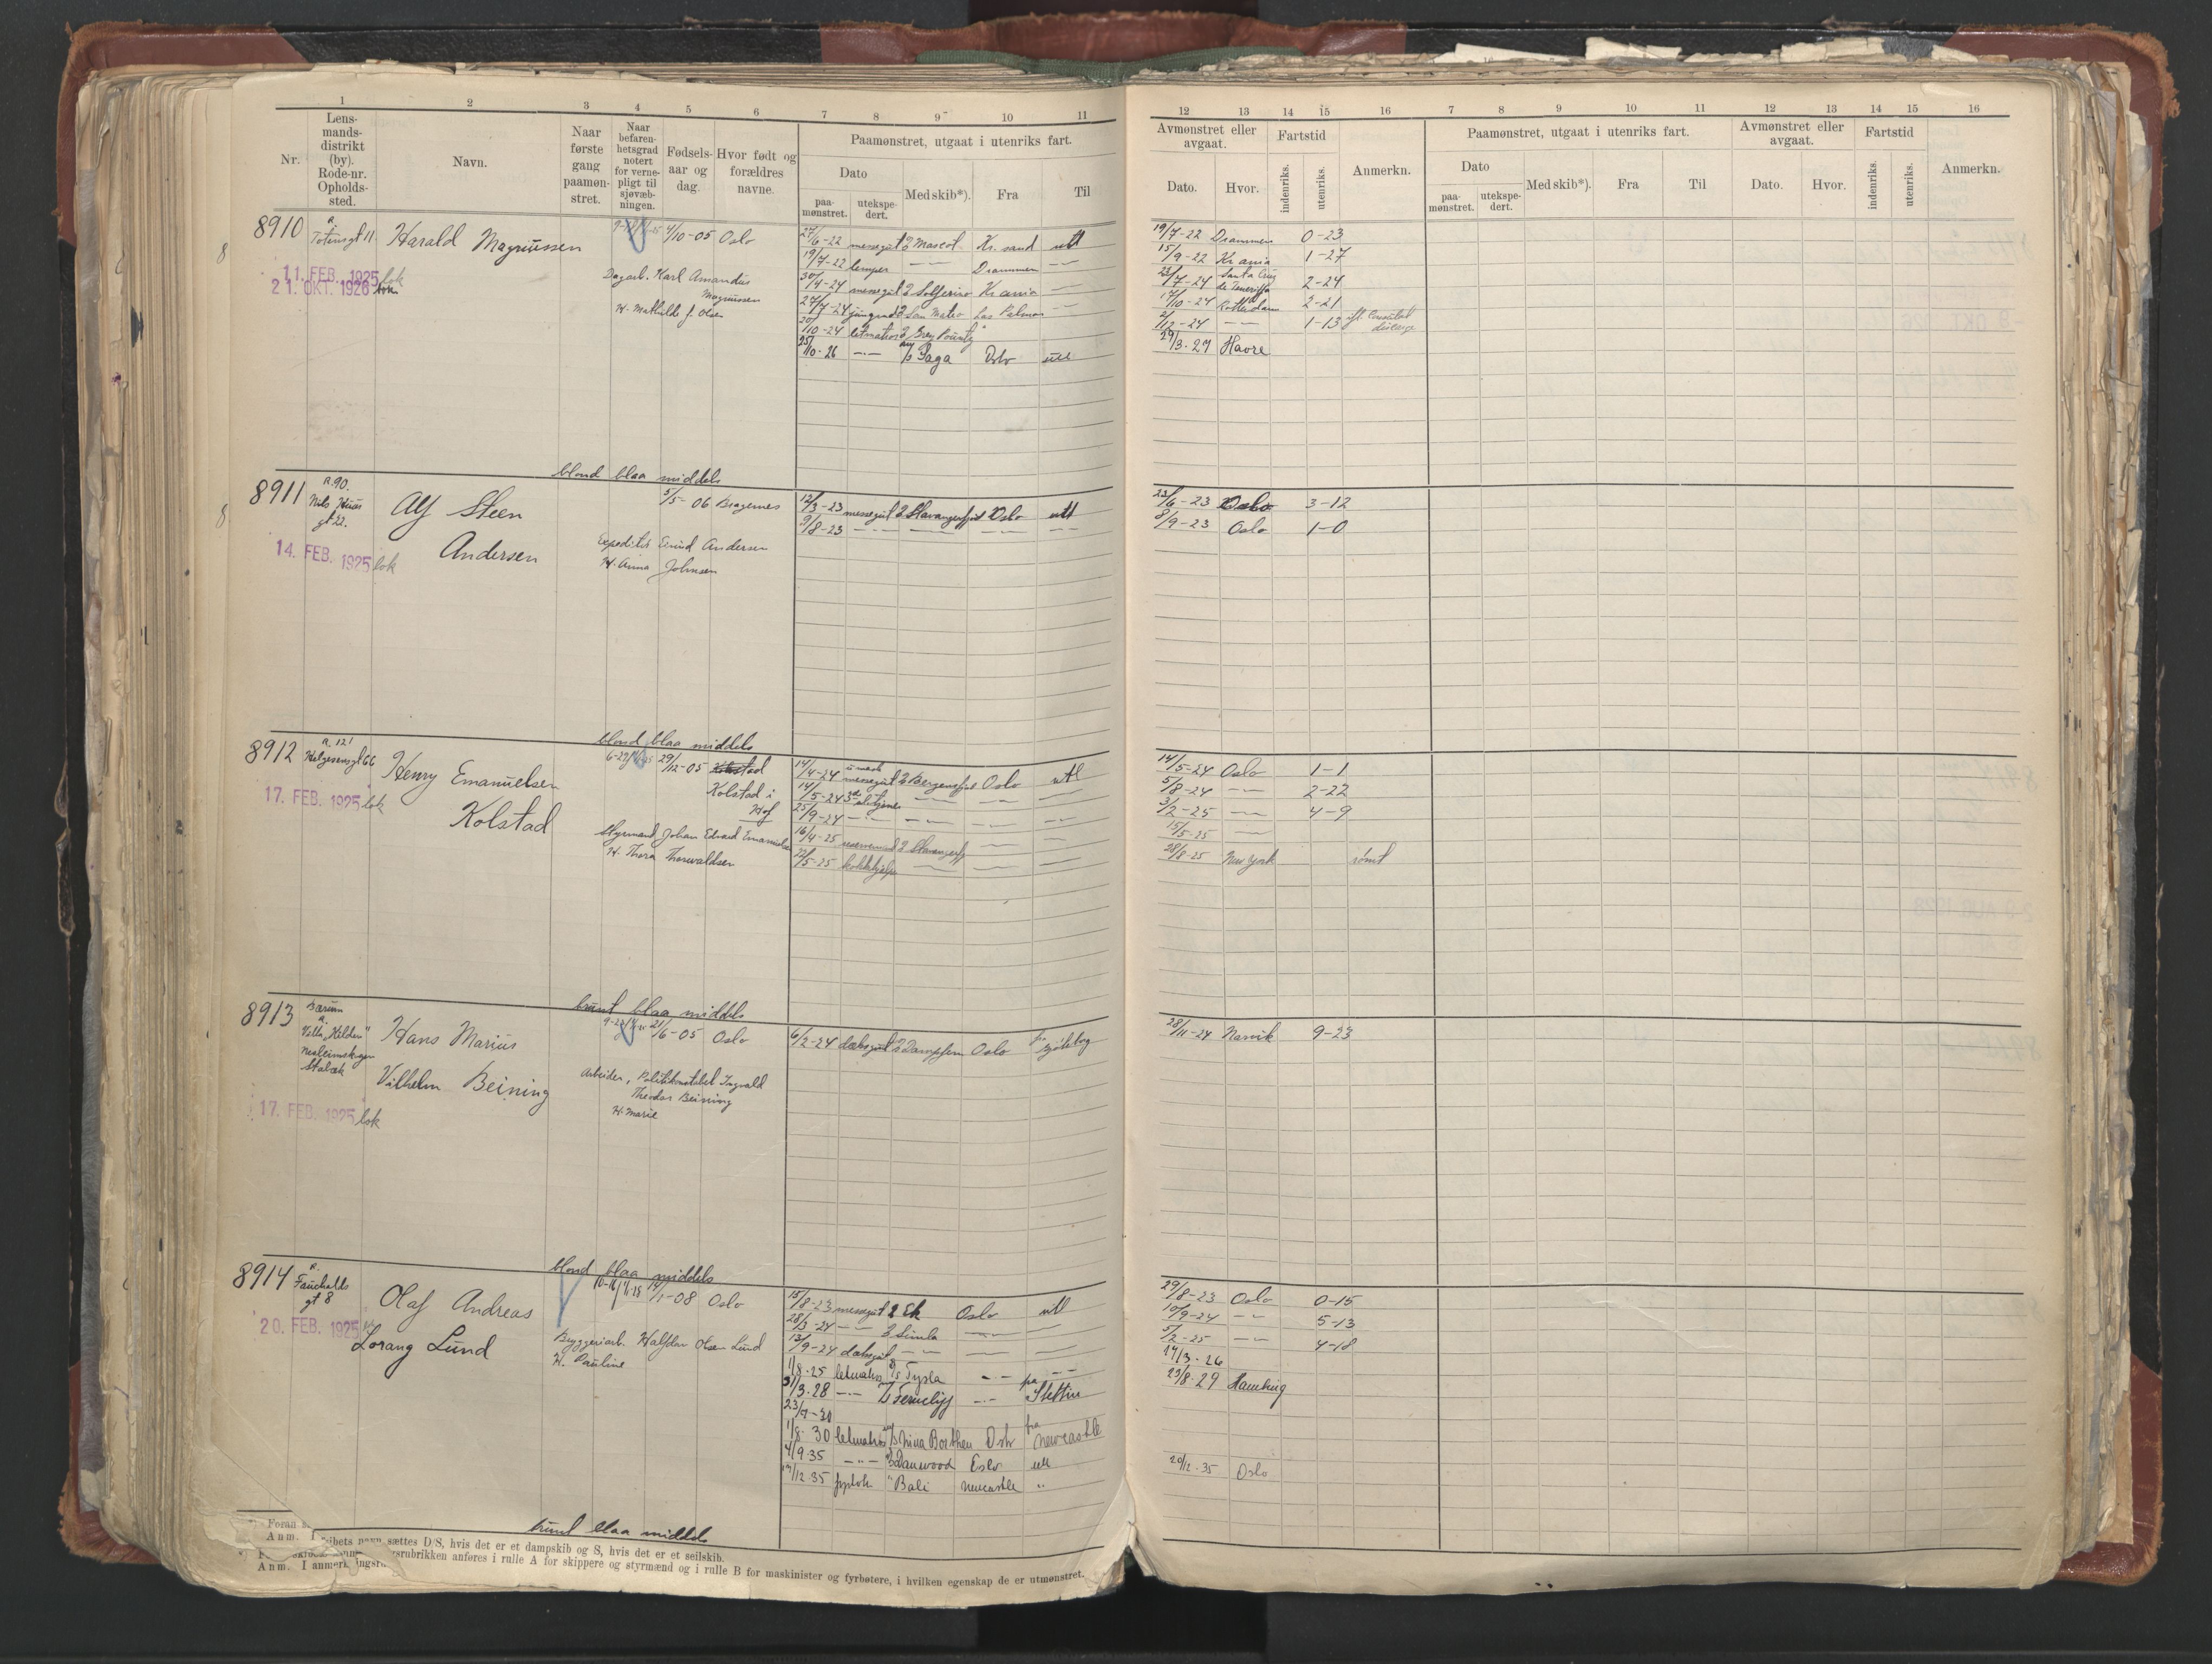 1 2 3 4 5 6 7 8 9 10 11
Nr.
Lens-
mands-
distrikt
(by).
Rode-nr.
Opholds-
sted.
Navn.
Naar
første
gang
paamøn-
stret.
Naar
befaren-
hetsgrad
notert
for verne-
pligt til
sjøvæb-
ningen.
Fødsels-
aar og
dag.
Hvor født og
forældres
navne.
Paamønstret, utgaat i utenriks fart.
Dato
paa-
mønstret.
utekspe-
dert.
Med skib*).
Fra
Til
12 13 14 15 16 7 8 9 10 11 12 13 14 15 16
Avmønstret eller
avgaat.
Dato.
Hvor.
Fartstid
indenriks.
utenriks.
Anmerkn.
Paamønstret, utgaat i utenriks fart.
Dato
paa-
mønstret.
utekspe-
dert.
Med skib*).
Fra
Til
Avmønstret eller
avgaat.
Dato.
Hvor.
Fartstid
indenriks.
utenriks.
Anmerkn.
8910
Totensgt 11
Harald Magnussen
4/10-05 Oslo
11. FEB. 1925 lok
21. OKT. 1926
Dagarb. Karl Amandus
Magnussen
H. Mathilde J. Olsen
27/6-22 messegut Mascot Kr.sand utl
19/7-22 lemper — — Drammen — —
30/4-24 messegut Solferino Kr ania —
27/7-24 San Mateo Las Palmas —
30/10-24 letmatros Grey County
25/10-26 —·— Saga Oslo utl
19/7-22 Drammen 0-23
15/9-22 Kr ania 1-27
23/7-24 Santa Cruz de Teneriffa 2-24
17/10-24 Rotterdam 2-21
2/12-24 — — 1-13
29/3-27 Havre
blond blaa middels
8911
R.90.
Nils Huus
gt 22.
Alf Steen
Andersen
5/5-06 Bragernes
14. FEB. 1925 lok
Expeditør Andersen
H. Anna Johnsen
12/3-23 messegut Stavangerfjord Oslo utl
9/8-23 — — — — —
23/6-23 Oslo 3-12
8/9-23 Oslo 1-0
blond blaa middels
8912
R. 121
Helgesensgt 66
Henry Emanuelsen
Kolstad
29/12-05
Kolstad i
Hof
17. FEB. 1925 lok
Styrmand Johan Edvard Emanuelsen
H. Thora Thorvaldsen
14/4-24 messegut Bergensfjord Oslo utl
14/5-24 — — — —
25/9-24 — — — —
16/4-25 Stavangerfj —
22/5-25 kokkhjelper — —
14/5-24 Oslo 1-1
5/8-24 — — 2-22
3/2-25 — — 4-9
15/5-25 —
28/8-25 New York rømt
brunt blaa middels
8913
Bærum
R.
Villa "Kilden"
Stabæk
Hans Marius
Vilhelm Beining
21/6-05 Oslo
17. FEB. 1925 lok
Arbeider, Politikonstabel Ingvald
Theodor Beining
H. Marie
6/2-24 dæksgut Dampfem Oslo
28/11-24 Narvik 9-23
blond blaa middels
8914
R.
Fauchalds
gt 8
Olaf Andreas
Lorang Lund
14/1-08 Oslo
20. FEB. 1925
Bryggeriarb. Halfdan Olsen Lund
H. Pauline
15/8-23 messegut Ek Oslo utl
28/3-24 — — Simla — —
13/9-24 dæksgut — — — —
1/8-25 letmatros Tysla —·— — —
31/3-28 —·— —·— Stettin
23/7-30
1/8-30 letmatros Nina Borthen Oslo fra Newcastle
4/9-35 —·— Danwood Oslo utl
17/12-35 " Bali Newcastle "
29/8-23 Oslo 0-15
10/9-24 — — 5-13
5/2-25 — — 4-18
17/3-26
23/8-29 Hamburg
20/12-35 Oslo
brunt blaa middels
Foran s
Anm. I
skibets navn sættes D/S, hvis det er et dampskib og S, hvis det er et seilskib.
Anm. I anmerkningsrubrikken anføres i rulle A for skippere og styrmænd og i rulle B for maskinister og fyrbøtere, i hvilken egenskap de er utmønstret.